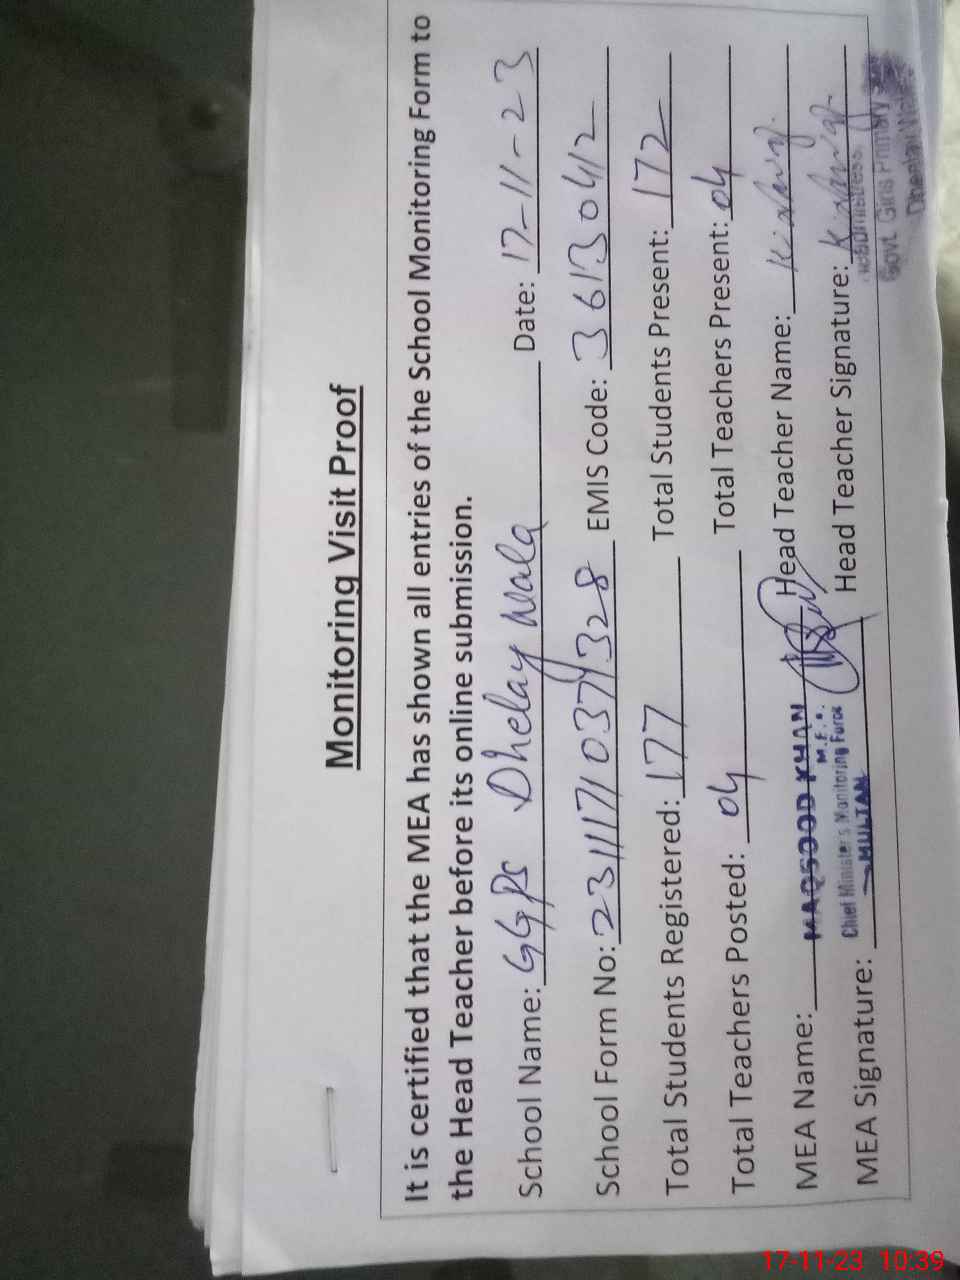 Monitoring Visit Proof
It is certified that the MEA has shown all entries of the School Monitoring Form to
the Head Teacher before its online submission.
School Name: GGPS Dhelay Wala Date: 17-11-23
School Form No: EMIS Code: 36130412
Total Students Registered: 177 Total Students Present: 172
Total Teachers Posted: 04 Total Teachers Present: 04
MEA Name: MAQSOOD KHAN Head Teacher Name:
M.E.A.
Chief Minister's Monitoring Force
MEA Signature: MULTAN Head Teacher Signature:
Headmistress
Govt. Girls Primary
17-11-23 10:39